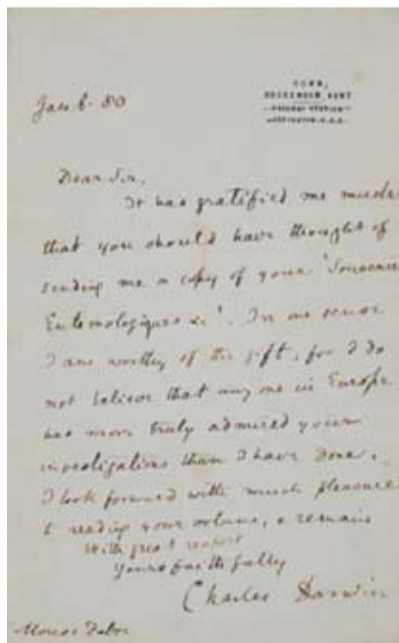 Jan 6. 80
DOWN,
BECKENHAM, KENT.
RAILWAY STATION
ORPINGTON. S.E.R.
Dear Sir,
It has gratified me much
that you should have thought of
sending me a copy of your 'Souvenirs
Entomologiques &c'. In one sense
I am worthy of the gift, for I do
not believe that any one in Europe
has more truly admired your
investigations than I have done.
I look forward with much pleasure
to reading your volume, & remain
With great respect
Yours faithfully
Charles Darwin
Fabre